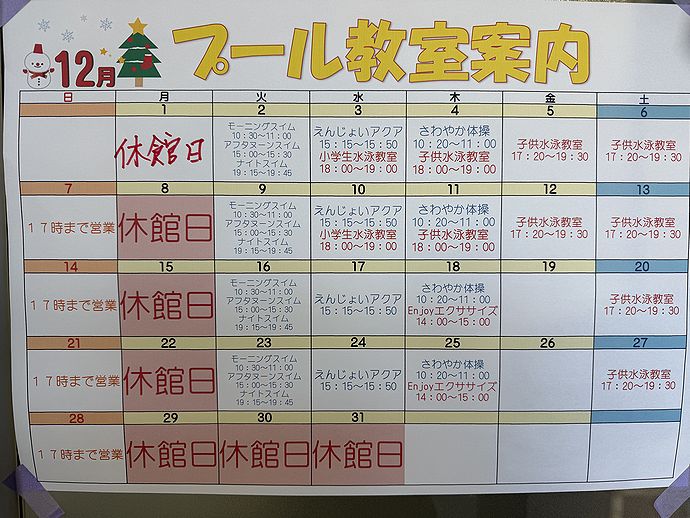 12月 プール教室案内
日 月 火 水 木 金 土
1 2 3 4 5 6
休館日
モーニングスイム
10:30～11:00
アフタヌーンスイム
15:00～15:30
ナイトスイム
19:15～19:45
えんじょいアクア
15:15～15:50
小学生水泳教室
18:00～19:00
さわやか体操
10:20～11:00
子供水泳教室
18:00～19:00
子供水泳教室
17:20～19:30
子供水泳教室
17:20～19:30
7 8 9 10 11 12 13
17時まで営業
休館日
モーニングスイム
10:30～11:00
アフタヌーンスイム
15:00～15:30
ナイトスイム
19:15～19:45
えんじょいアクア
15:15～15:50
小学生水泳教室
18:00～19:00
さわやか体操
10:20～11:00
子供水泳教室
18:00～19:00
子供水泳教室
17:20～19:30
子供水泳教室
17:20～19:30
14 15 16 17 18 19 20
17時まで営業
休館日
モーニングスイム
10:30～11:00
アフタヌーンスイム
15:00～15:30
ナイトスイム
19:15～19:45
えんじょいアクア
15:15～15:50
さわやか体操
10:20～11:00
Enjoyエクササイズ
14:00～15:00
子供水泳教室
17:20～19:30
21 22 23 24 25 26 27
17時まで営業
休館日
モーニングスイム
10:30～11:00
アフタヌーンスイム
15:00～15:30
ナイトスイム
19:15～19:45
えんじょいアクア
15:15～15:50
さわやか体操
10:20～11:00
Enjoyエクササイズ
14:00～15:00
子供水泳教室
17:20～19:30
28 29 30 31
17時まで営業
休館日
休館日
休館日